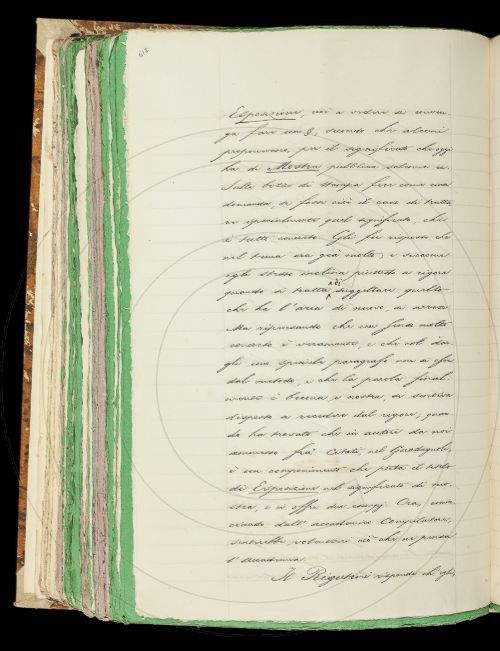 612
Esposizione, cioè a veder se conven-
ga fare un §, secondo che alcuni
proponevano, per il significato che oggi
ha di Mostra pubblica
Sulla bozza di stampa fece come una
domanda, se fosse così il caso di tratta-
re specialmente quel significato, che
è tutto concreto. Gli fu risposto che
nel tema era già molto; e siccome
egli stesso inclina piuttosto a rigore
quando si tratta di suggellare quello
che ha l'aria di nuovo, si arrese.
Ma ripensando che
concreto è veramente, e che col dar-
gli uno speciale paragrafo non si esce
dal metodo, e che la parola final-
mente è buona e nostra, si sentiva
disposto a recedere dal rigore, quan-
do ha trovato che in autori da noi
annoverati fra' Citati, nel Guadagnoli,
è un componimento che porta il titolo
di Esposizione nel significato di mo-
stra, e si offre due esempj. Ora, come
crede dall' accademico Compilatore,
sentirebbe volentieri ciò che ne pensa
l' Accademia.
Il Rigutini risponde che gli,